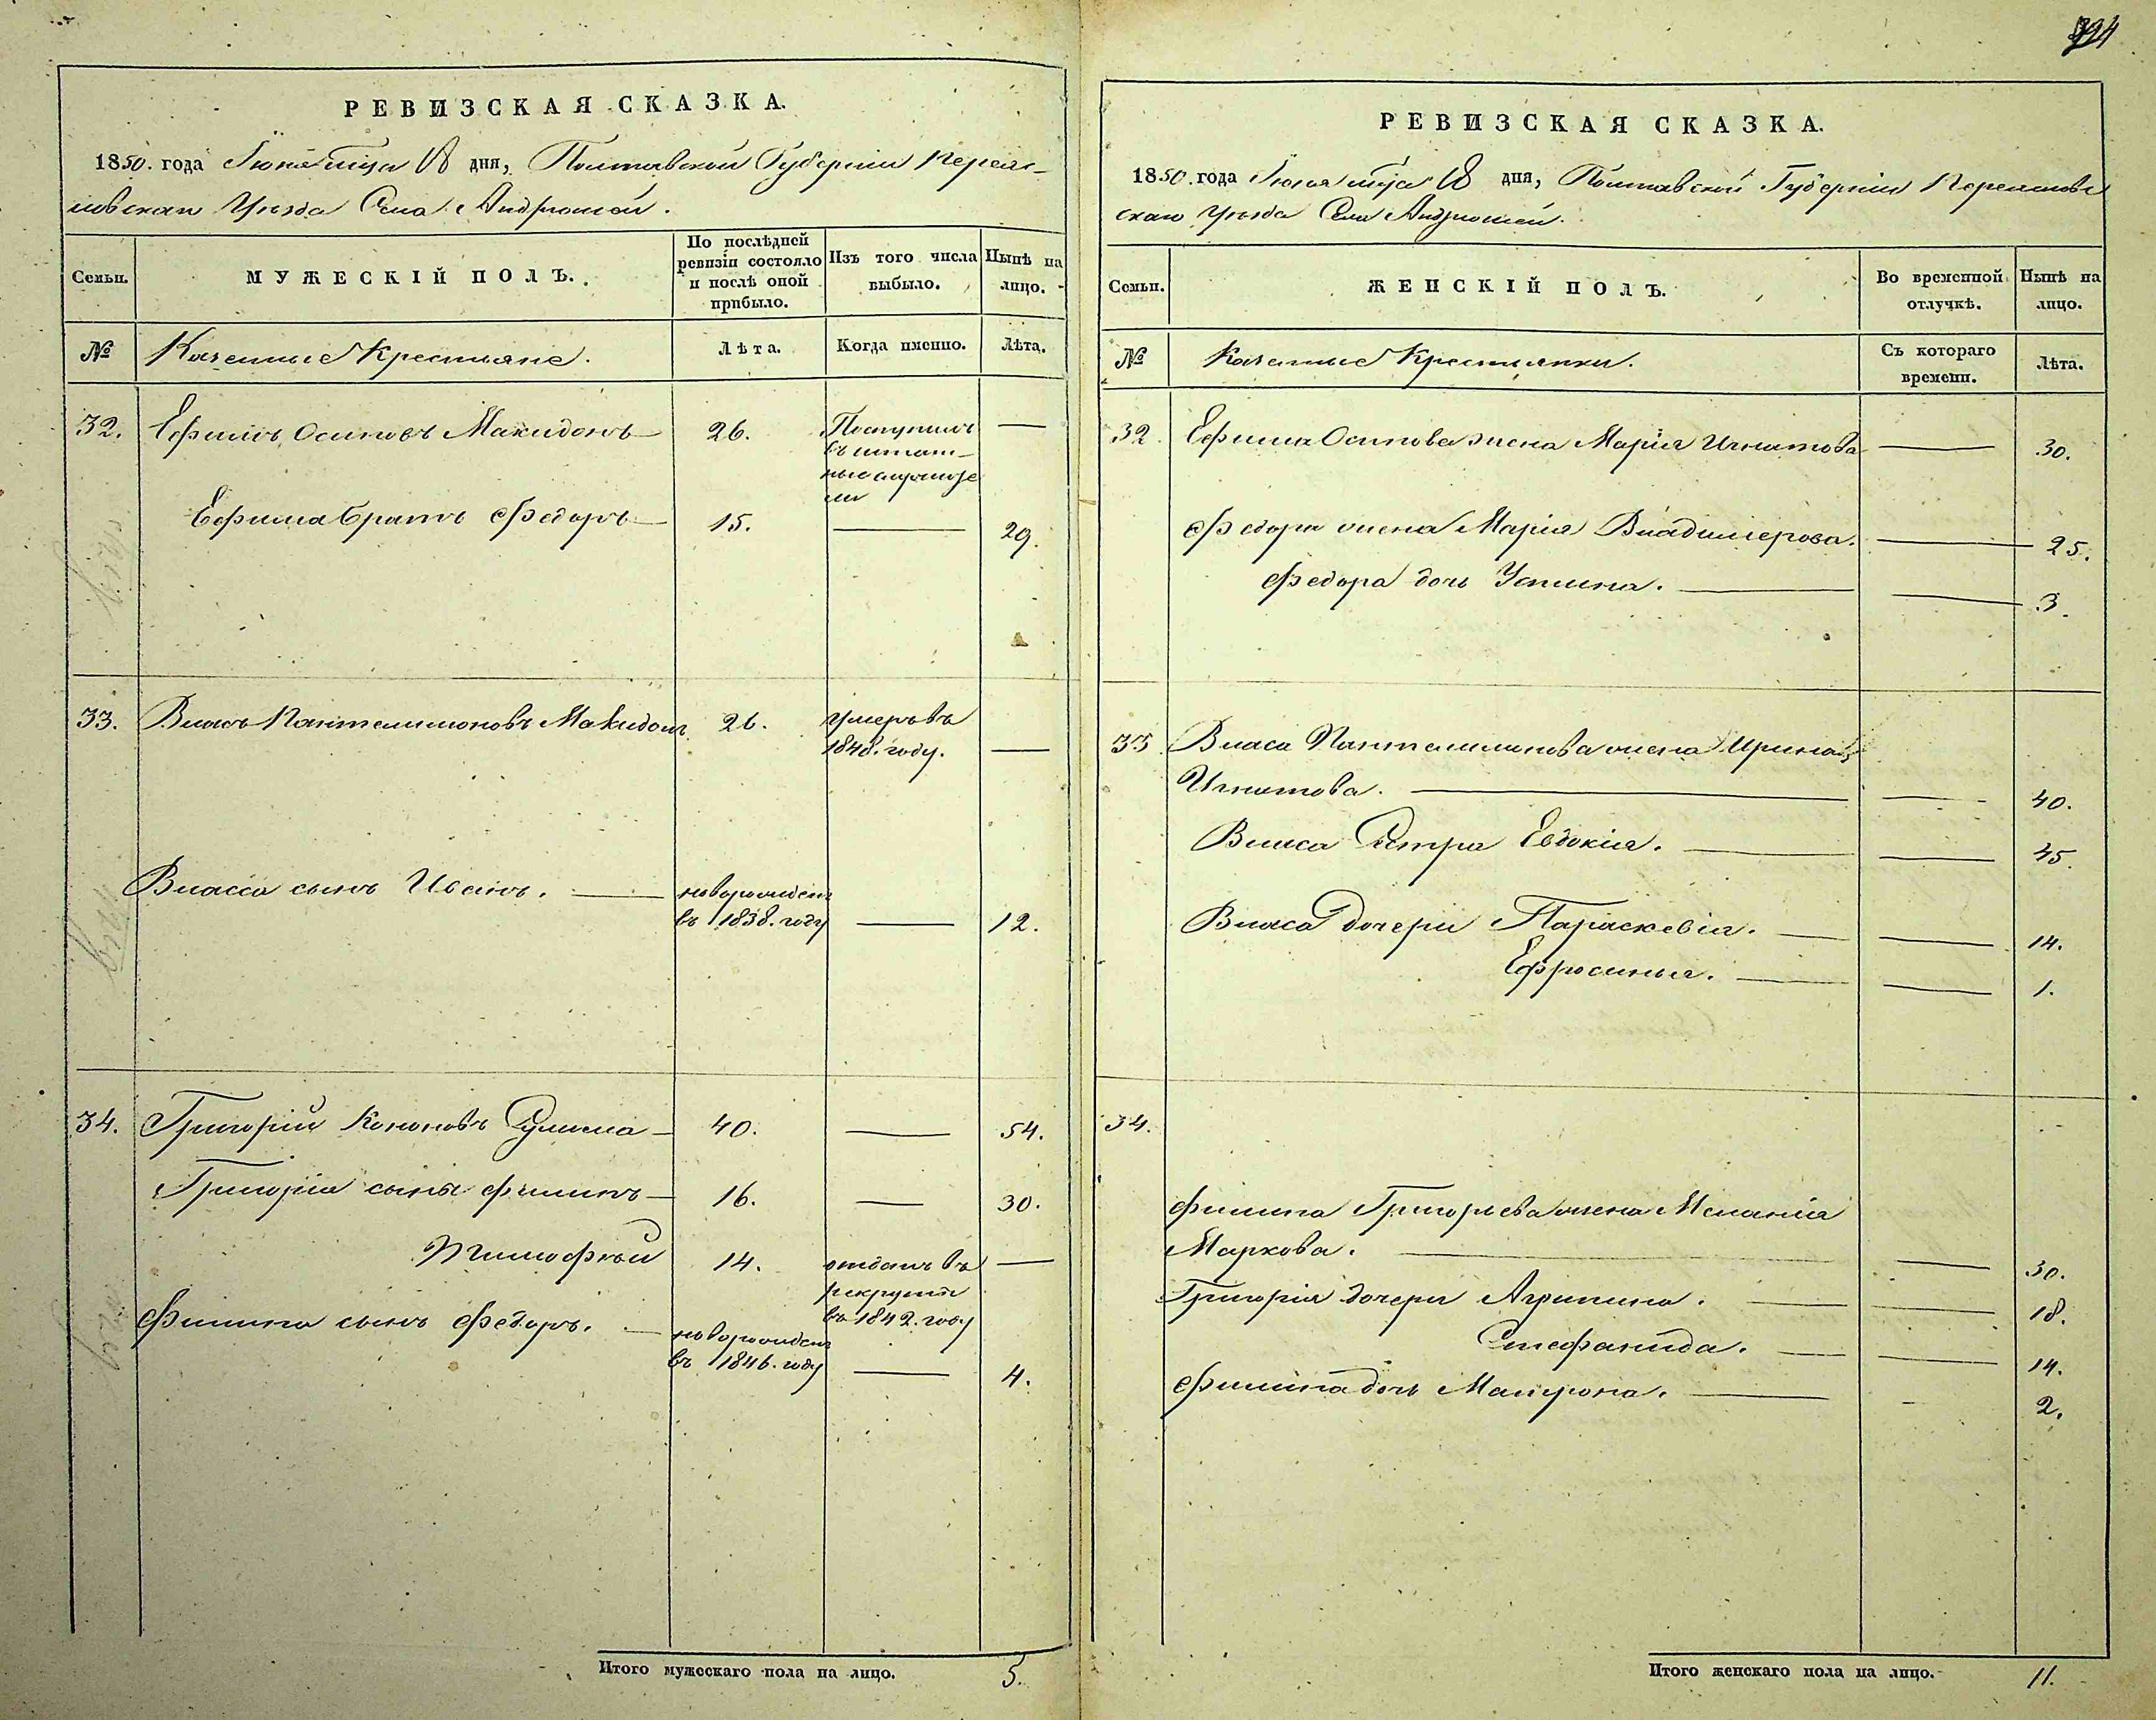 РЕВИЗСКАЯ СКАЗКА.
1850. года Іюня мца 18 дня, Полтавской Губерніи Переяс-
лавскаго Уѣзда Села Андрюшей.
Семьи.
МУЖЕСКІЙ ПОЛЪ.
По послѣдней
ревизіи состояло
и послѣ оной
прибыло.
Изъ того числа
выбыло.
Нынѣ на
лицо.
№
Казенные Крестьяне.
Лѣта.
Когда именно.
Лѣта.
32. Ефимъ Осиповъ Макидонъ 26. Поступилъ —
въ штат-
ные служите
ли
Ефима братъ Федоръ 15. — 29.
33. Власъ Пантелимоновъ Макидонъ 26. умеръ въ
1848. году. —
Власа сынъ Иванъ. — новорожденъ
въ 1838. году — 12.
34. Григорій Кононовъ Сулима 40. — 54.
Григорія сыны Филипъ 16. — 30.
Тимофѣй 14. отданъ въ —
рекруты
въ 1842. году
Филипа сынъ Федоръ. — новорожден
въ 1846. году — 4.
Итого мужескаго пола на лицо. 5.
РЕВИЗСКАЯ СКАЗКА.
1850. года Іюня мца 18 дня, Полтавской Губерніи Переяславс
скаго Уѣзда Села Андрюшей.
Семьи.
ЖЕНСКІЙ ПОЛЪ.
Во временной
отлучкѣ.
Нынѣ на
лицо.
№
Казенные Крестьянки.
Съ котораго
времени.
Лѣта.
32. Ефима Осипова жена Марія Игнатова — 30.
Федора жена Марія Владимерова. — 25.
Федора дочь Устина. — 3.
33 Власа Пантелимонова жена Ирина
Игнатова. — 40.
Власа Сестра Евдокія. — 45.
Власа дочери Параскевія. — 14.
Ефросинья. — 1.
34.
Филипа Григорьева жена Меланія
Маркова. — 30.
Григорія дочери Агрипина. — 18.
Стефанида. — 14.
Филипа дочь Матрона. — 2.
Итого женскаго пола на лицо. 11.